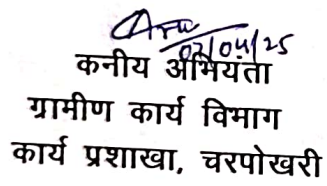 02/04/25
कनीय अभियंता
ग्रामीण कार्य विभाग
कार्य प्रशाखा, चरपोखरी